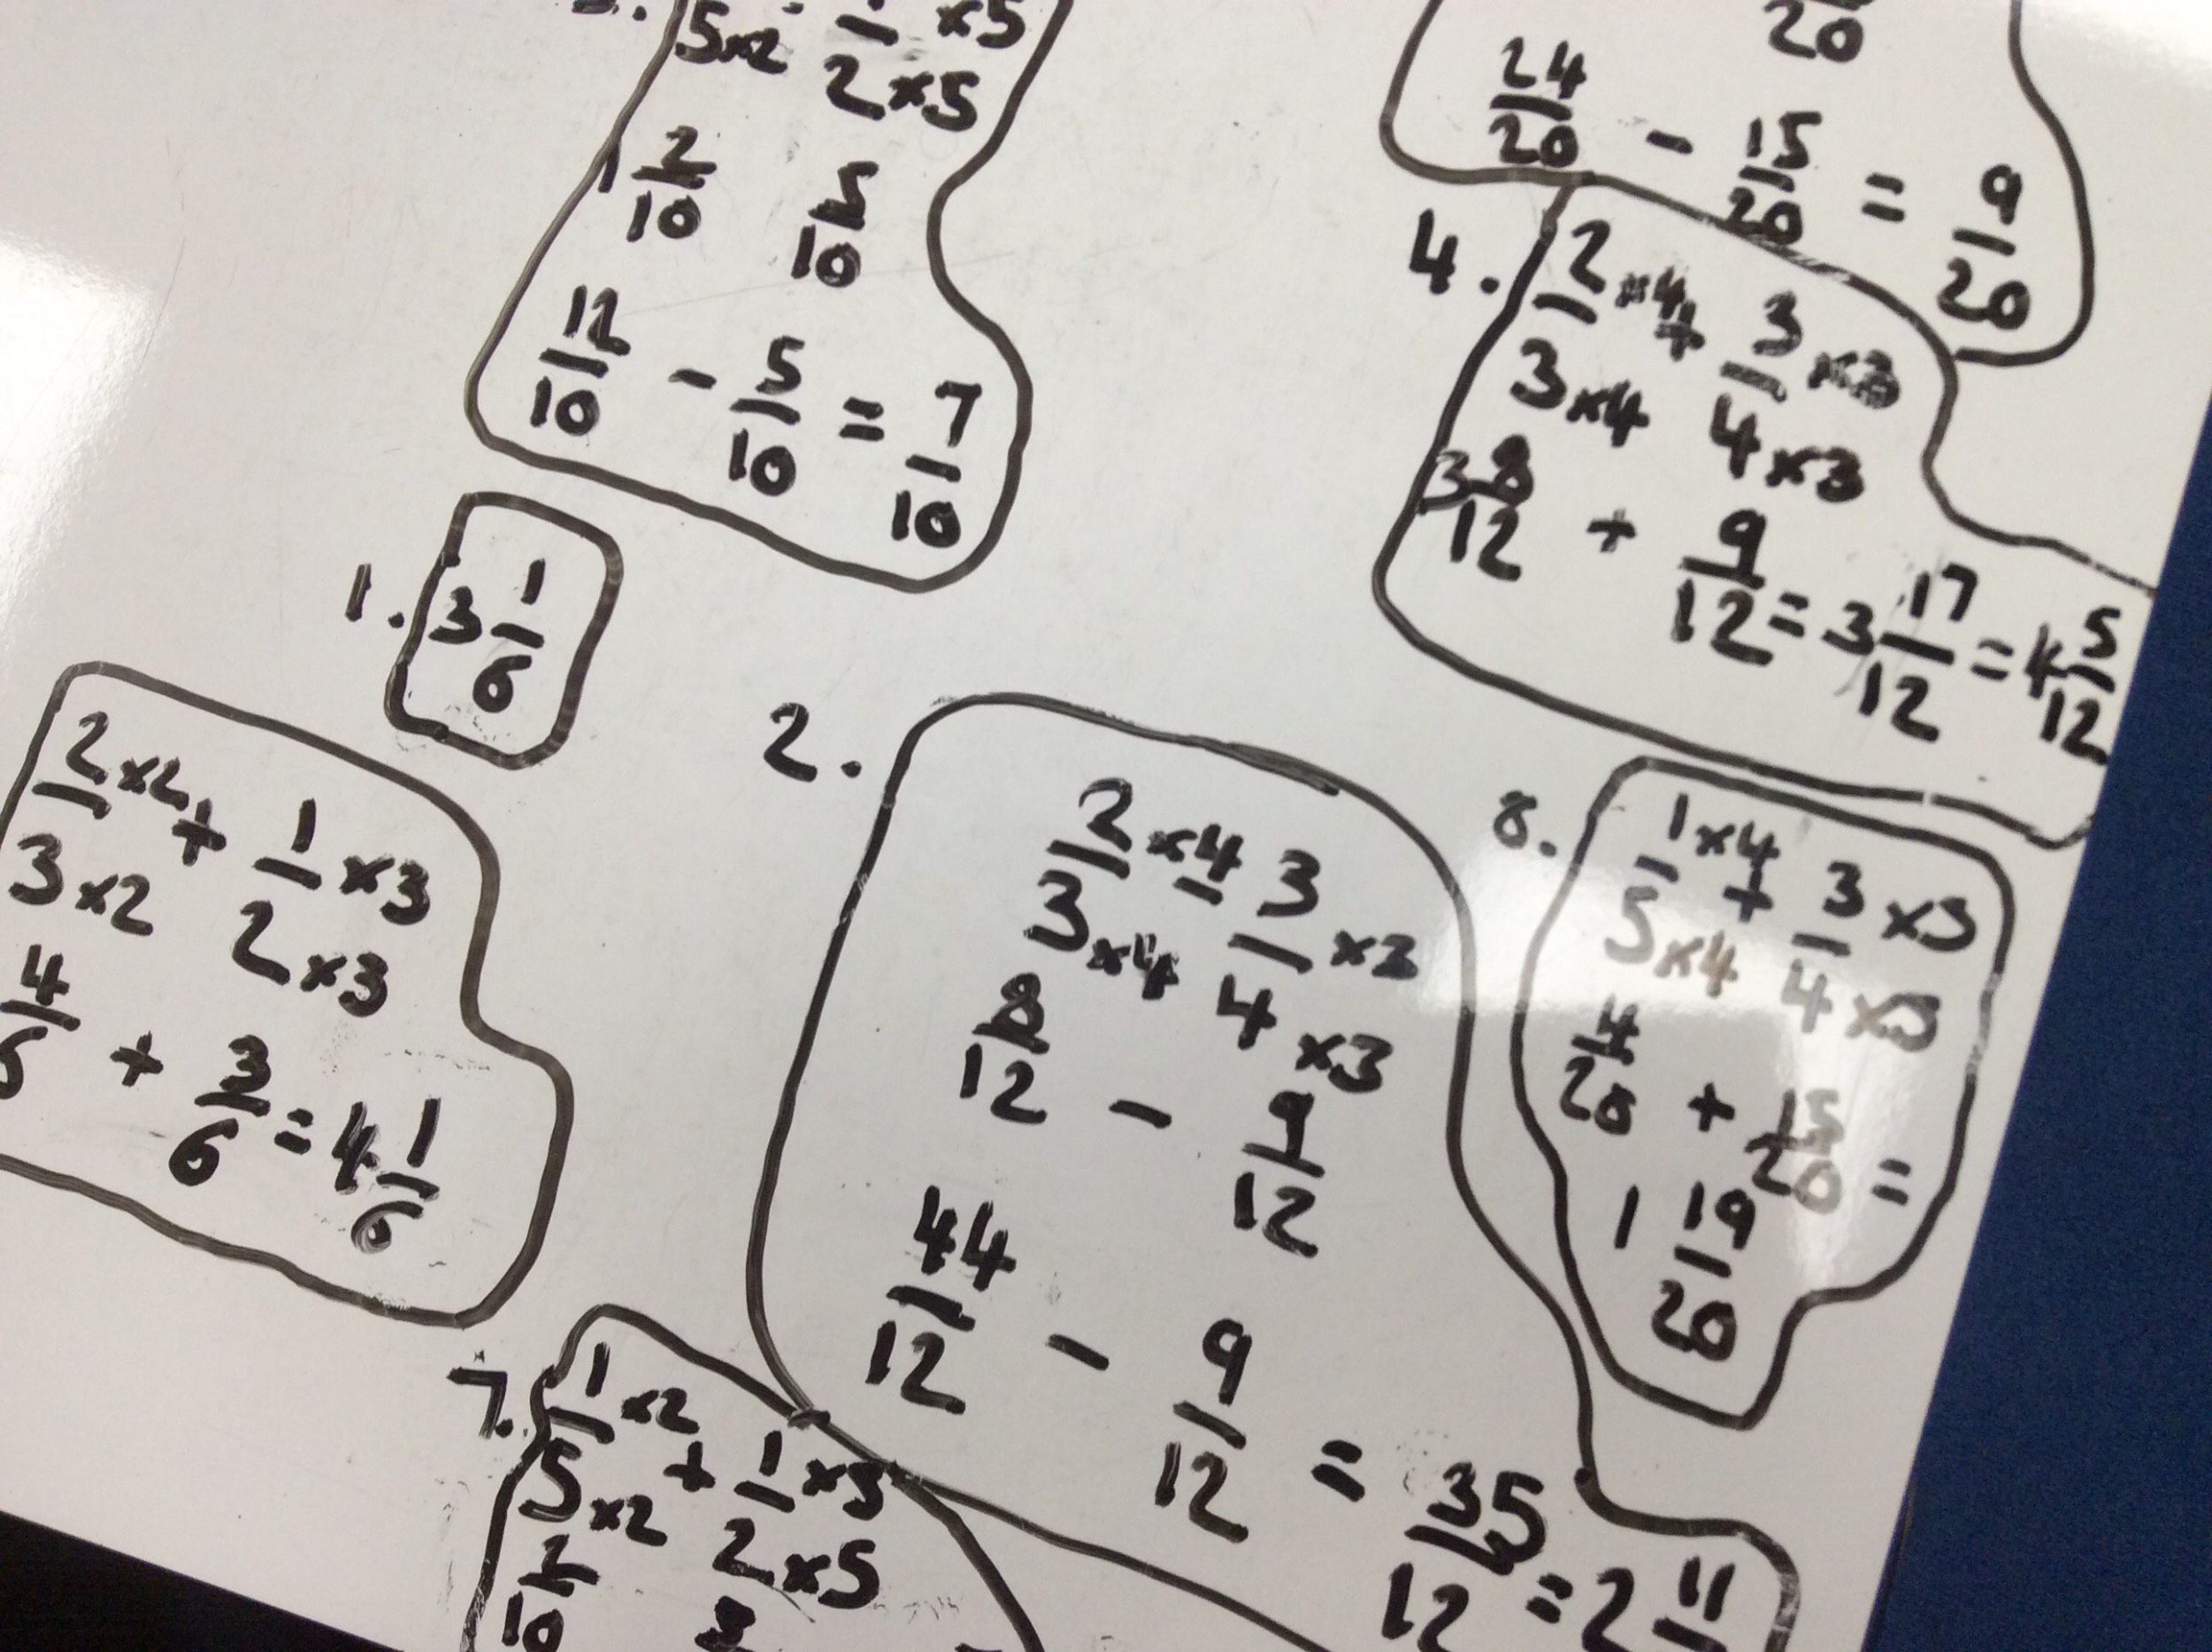 5×2 1/2 ×5 ×5
1 2/10 5/10
12/10 - 5/10 = 7/10
20
24/20 - 15/20 = 9/20
4. 2×4/3×4 + 3×3/4×3
3 8/12 + 9/12 = 3 17/12 = 4 5/12
1. 3 1/6
2×2/3×2 + 1×3/2×3
4 + 3/6 = 4 1/6
2. 2×4/3×4 - 3×3/4×3
8/12 - 9/12
44/12 - 9/12 = 35/12 = 2 11
8. 1×4/5×4 + 3×5/4×5
4/20 + 15/20 =
1 19/20
7. 1×2/5×2 + 1×5/2×5
2/10